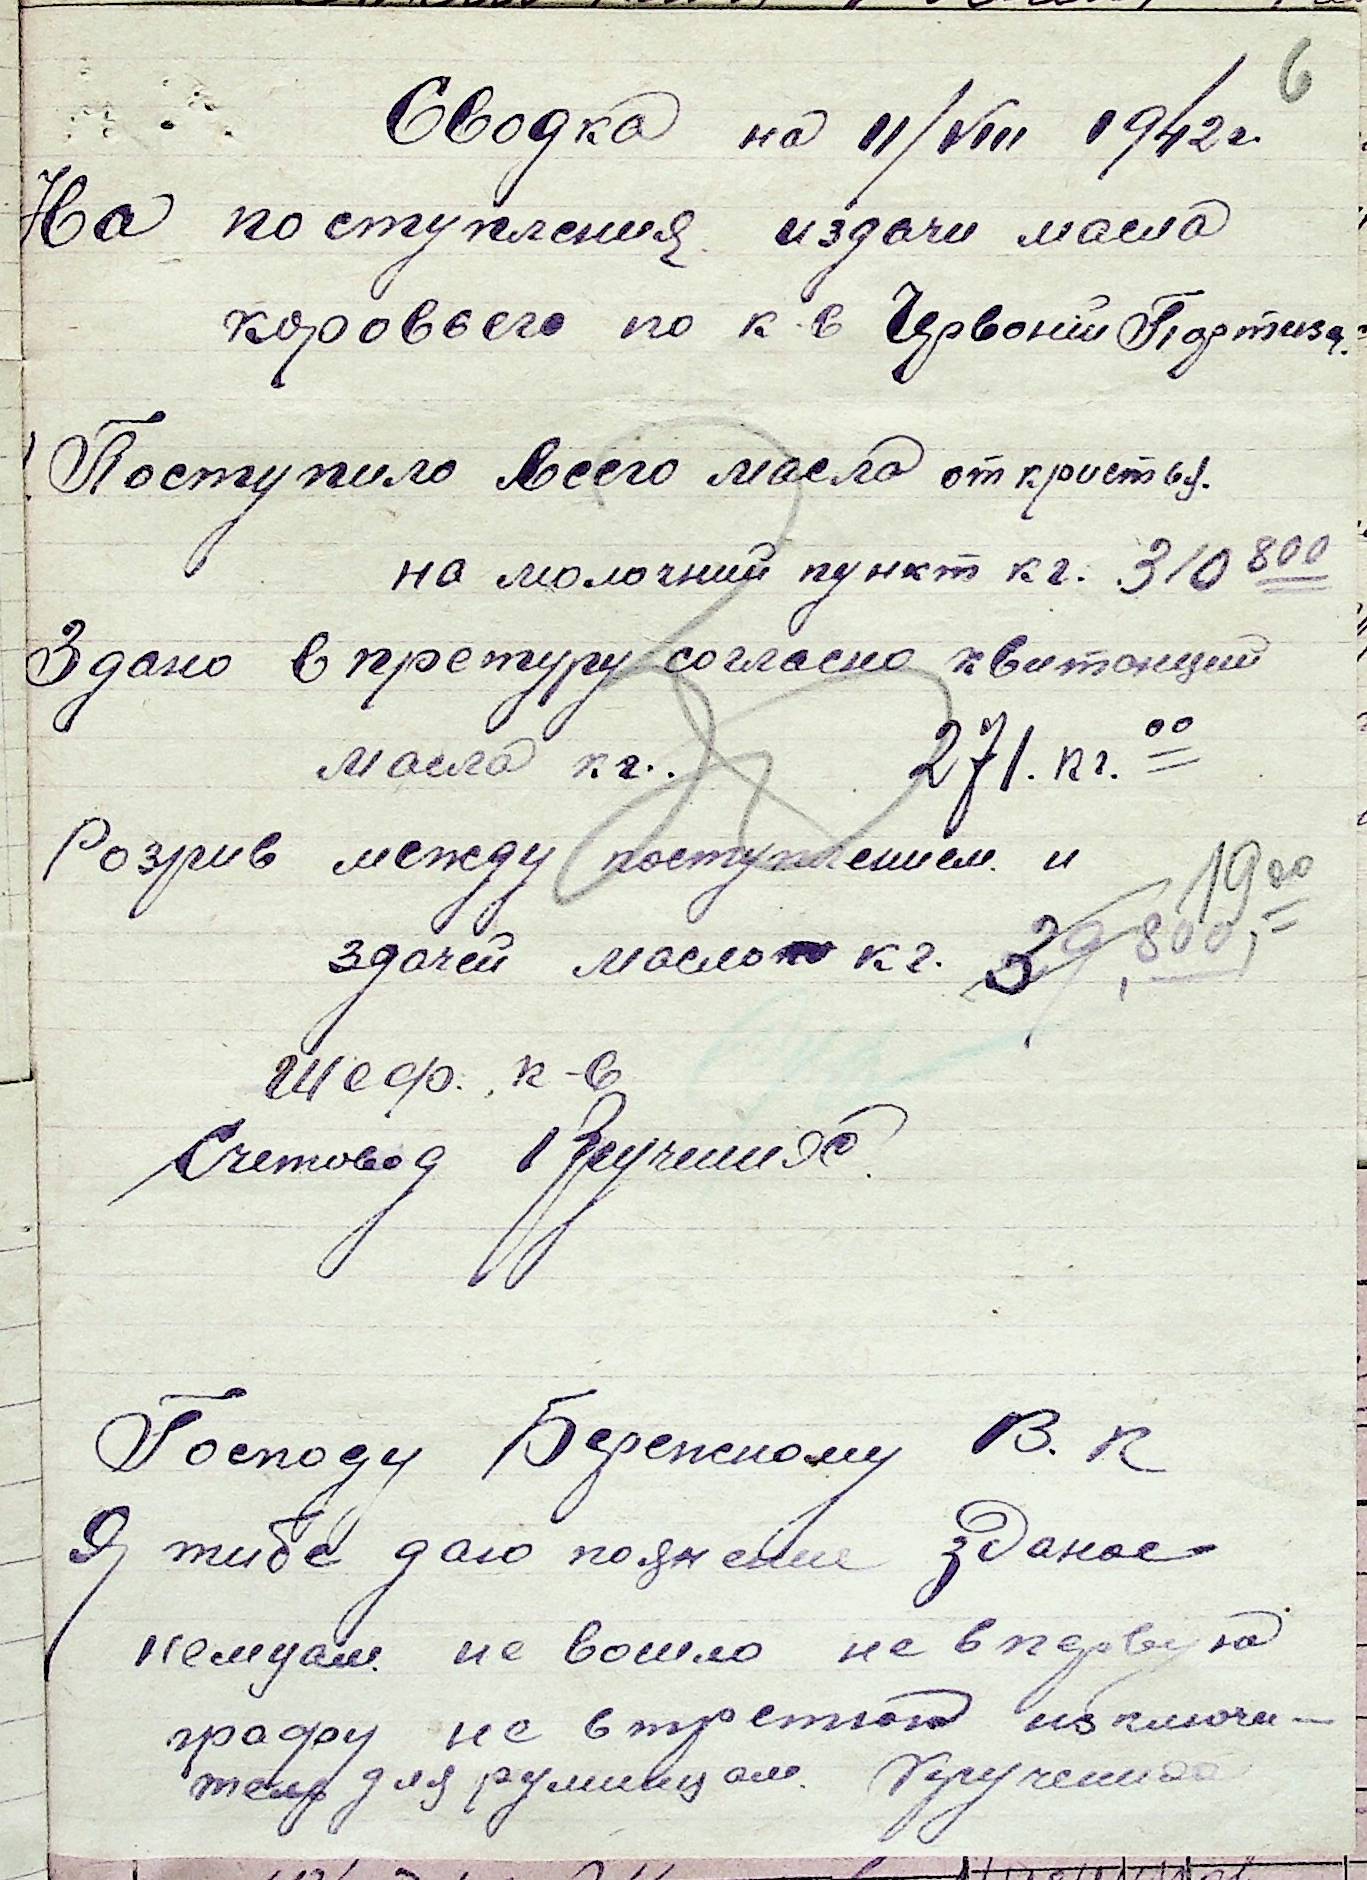 6
Сводка на 11/VIII 1942 г.
На поступления издачи масла
коровьего по к-в Червоний Портиза.
Поступило всего масла от кристья.
на молочний пункт кг. 310 800
Здано в претуру согласно квитонций
масла кг.. 271. кг. 00
Розрив между поступлением и
19 00
здачей масло кг. 39,800,
Шеф. к-в
Счетовод
Господу Бережному В. К
Я тибе даю пояснение зданое
немцам не вошло не в первую
графу не в третюю изключи-
тель для руминцам.